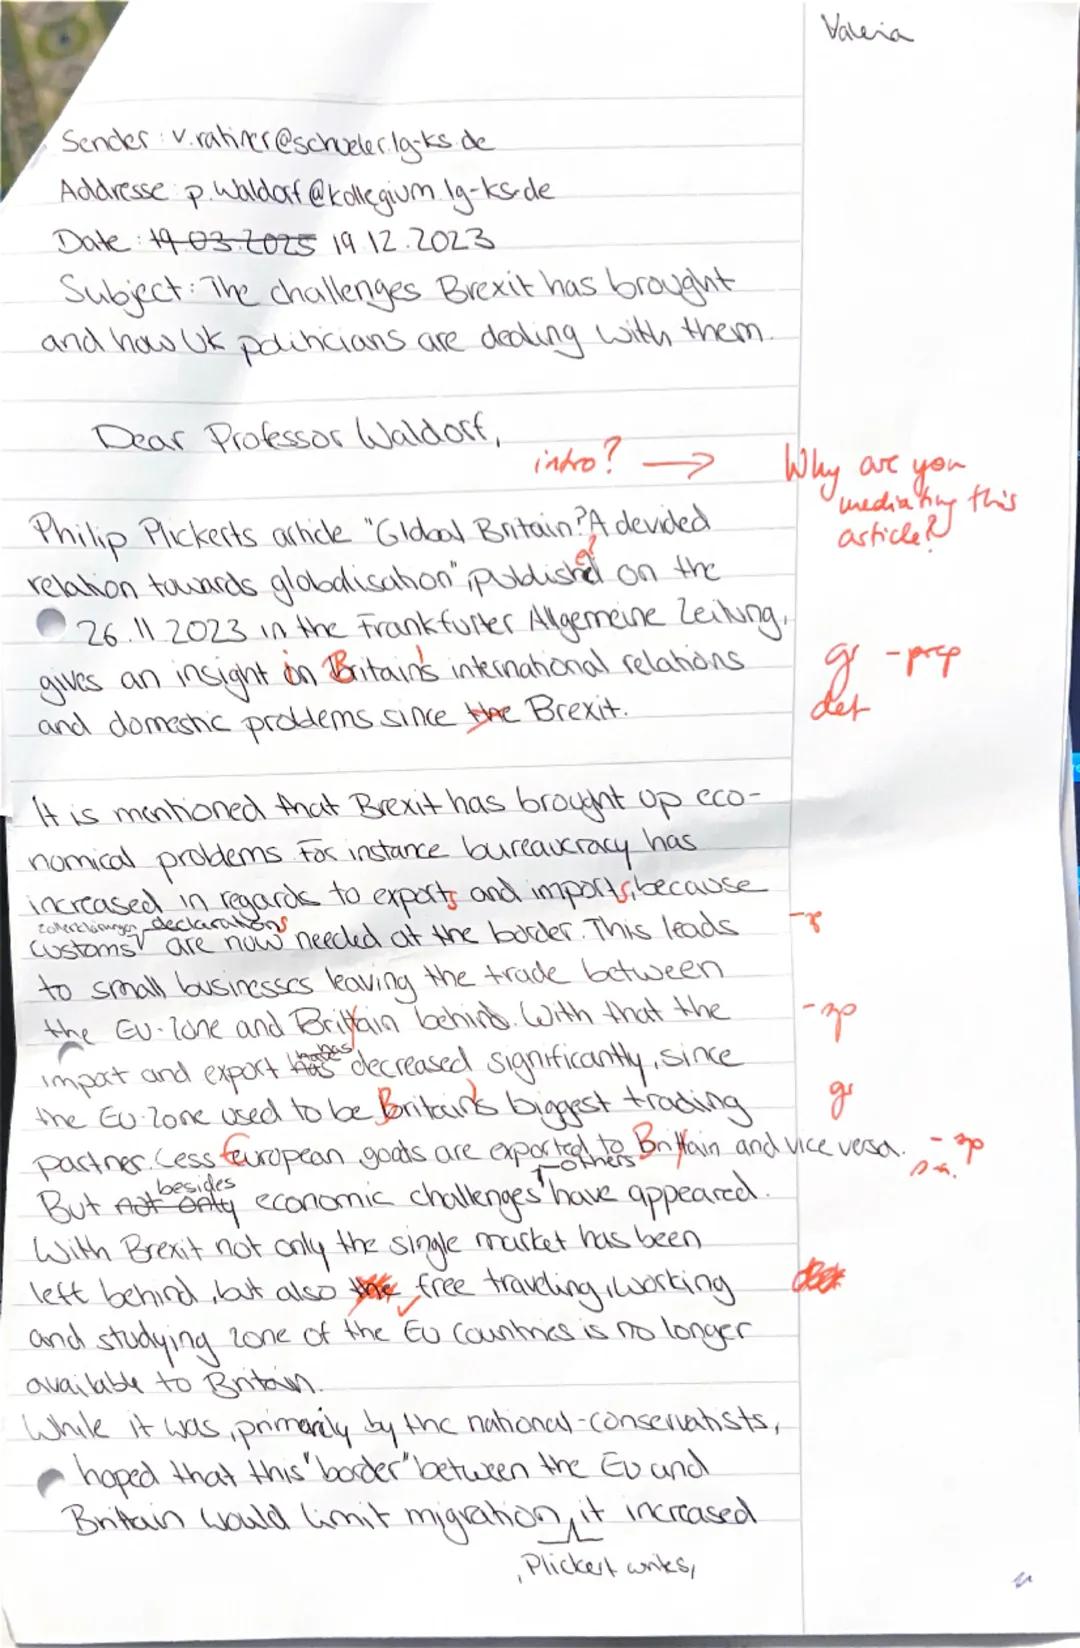 Valeria
Sender: v.ratiner@schueler.lg-ks.de
Addresse: p.Waldorf@kollegium.lg-ks.de
Date: 19.03.2025 19.12.2023
Subject: The challenges Brexit has brought
and how UK politicians are dealing with them.
Dear Professor Waldorf,
intro? → Why are you
mediating this
article?
Philip Plickerts article "Global Britain? A devided
relation towards globalisation", published on the
26.11.2023 in the Frankfurter Allgemeine Zeitung,
gives an insight in Britain's international relations gr -prep
and domestic problems since the Brexit. det
It is mentioned that Brexit has brought up eco-
nomical problems. For instance bureaucracy has
increased in regards to exports and imports, because
declarations
customs are now needed at the border. This leads -r
to small businesses leaving the trade between
the EU-Zone and Brittain behind. With that the -sp
import and export has decreased significantly, since
the EU-Zone used to be Britain's biggest trading gr
partner. Less European goods are exported to Brittain and vice versa. -sp
s.a.
besides others
But not only economic challenges have appeared.
With Brexit not only the single market has been
left behind, but also the free traveling, working
and studying zone of the EU countries is no longer
available to Britain.
While it was, primarily by the national-conservatists,
hoped that this "border" between the EU and
Brittain would limit migration, it increased
, Plickert writes,